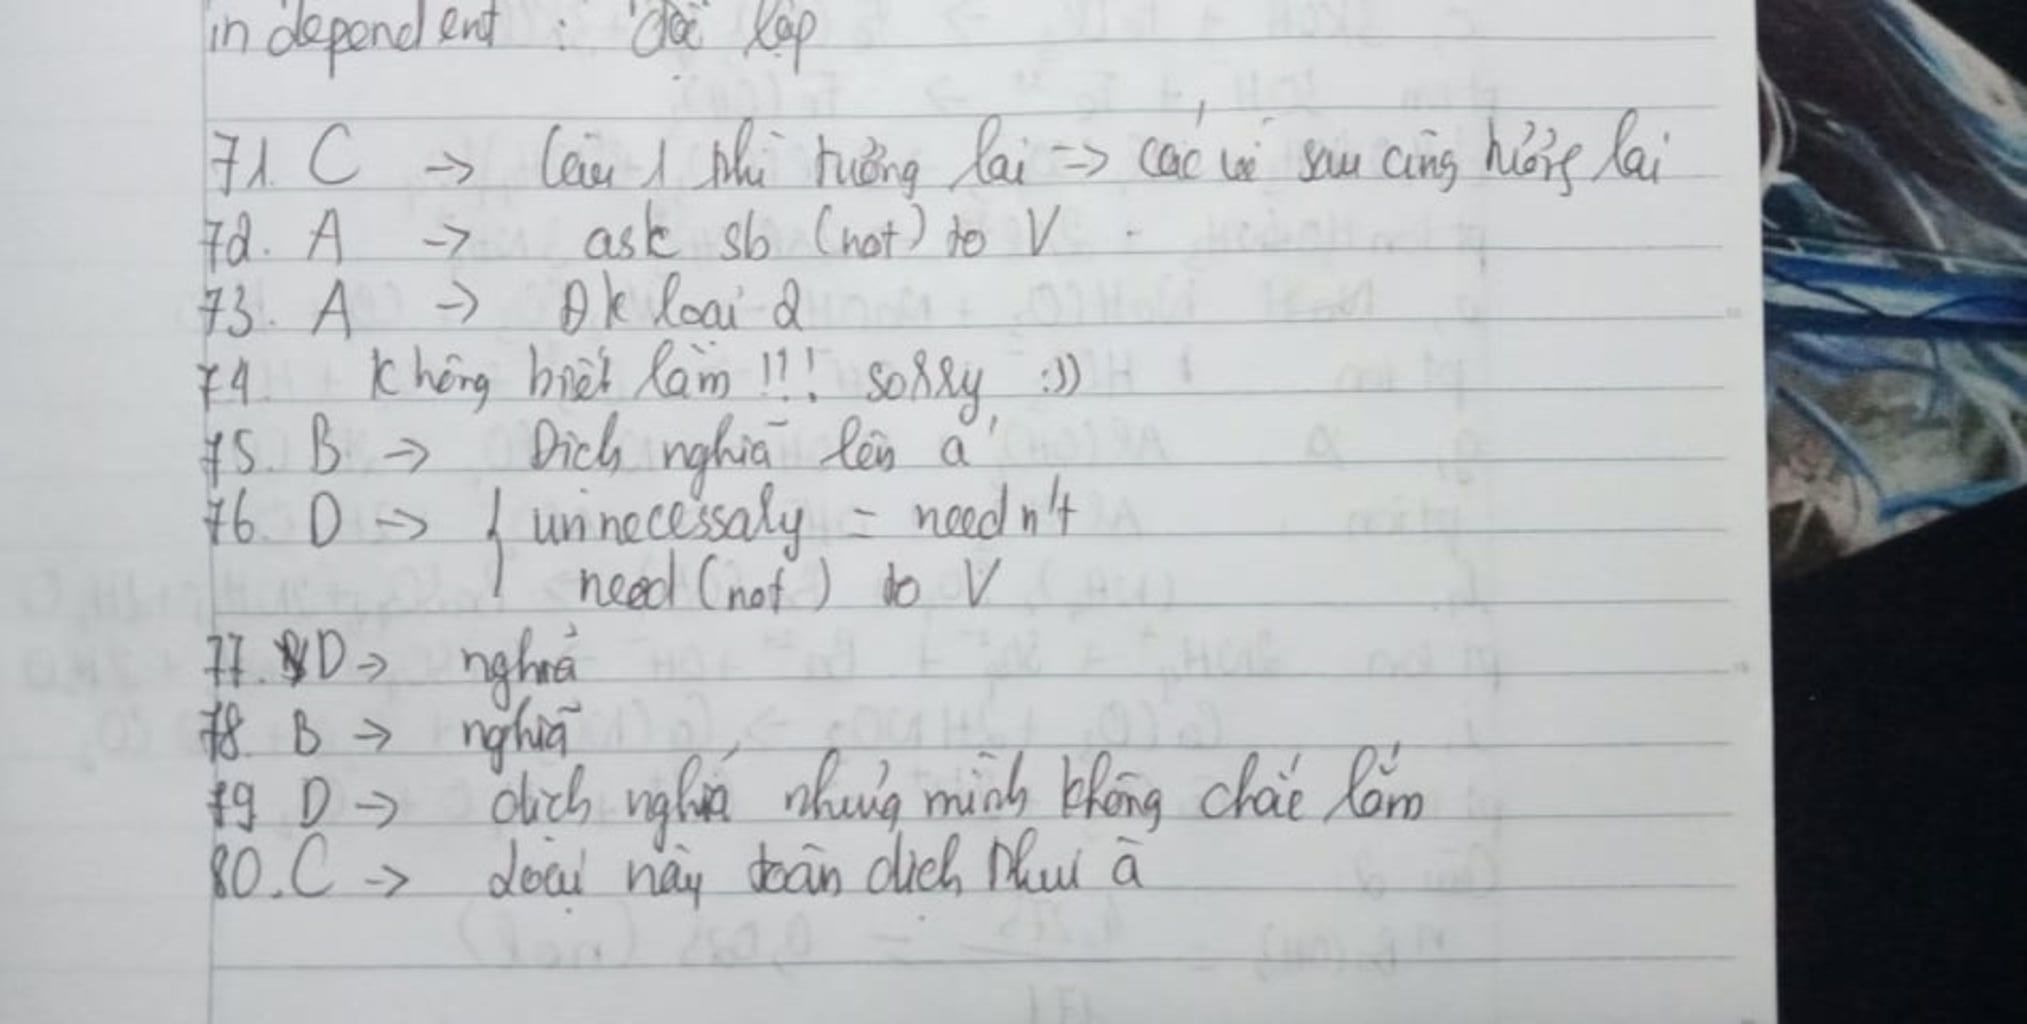 independent : độc lập
71. C → Câu 1 thì tương lai => các vế sau cũng tương lai
72. A → ask sb (not) to V
73. A → Đk loại 2
74 không biết làm !!! sorry :))
75. B → Dịch nghĩa lên á
76. D → { unnecessary = needn't
need (not) to V
77. D → nghĩa
78. B → nghĩa
79 D → dịch nghĩa nhưng mình không chắc lắm
80. C → loại này toàn dịch thui à